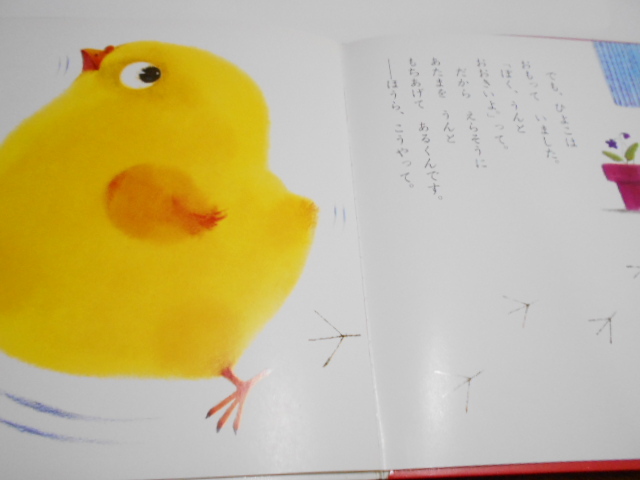 でも、ひよこは
おもって いました。
「ぼく、うんと
おおきいよ」って。
だから えらそうに
あたまを うんと
もちあげて あるくんです。
──ほうら、こうやって。